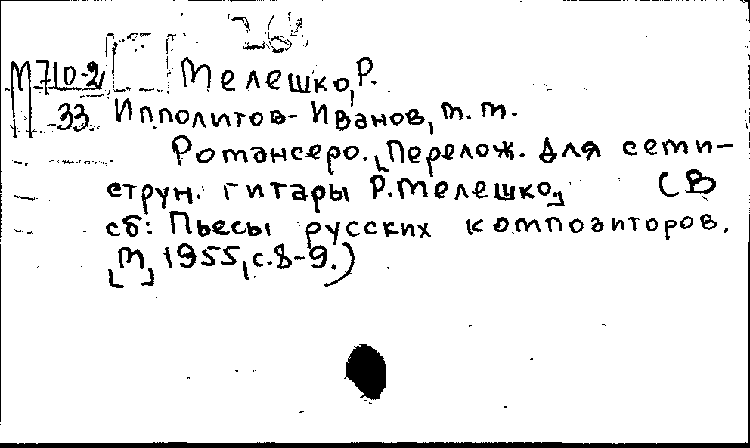 264
М710-2 Мелешко, Р.
33 Ипполитов-Иванов, М. М.
Романсеро. [Перелож. для семи-
струн. гитары Р. Мелешко] (В
сб: Пьесы русских композиторов.
[М] 1955, с. 8-9.)